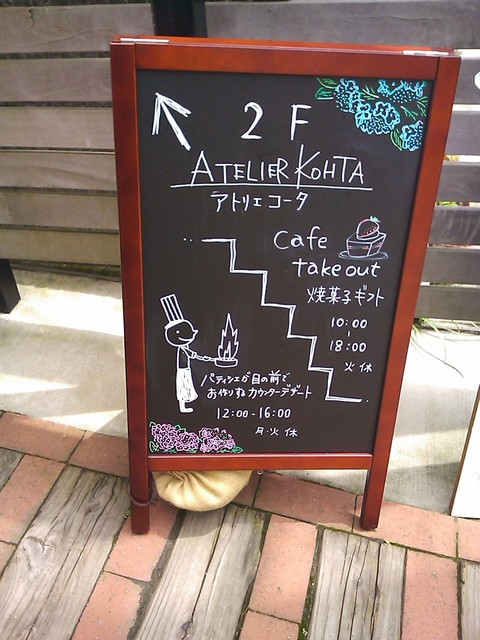 2F
ATELIER KOHTA
アトリエ コータ
Cafe
takeout
焼菓子ギフト
10:00
-
18:00
火休
パティシエが目の前で
お作りするカウンターデザート
12:00-16:00
月・火休